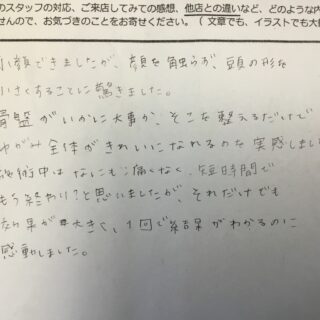 のスタッフの対応、ご来店してみての感想、他店との違いなど、どのような内
せんので、お気づきのことをお寄せください。（ 文章でも、イラストでも大
小顔できましたが、顔を触らず、頭の形を
小さくすることに驚きました。
骨盤がいかに大事か、そこを整えるだけで
ゆがみ全体がきれいになれるのを実感しまし
施術中はなにも痛くなく、短時間で
もう終わり？と思いましたが、それだけでも
効果が大きく、1回で結果がわかるのに
感動しました。